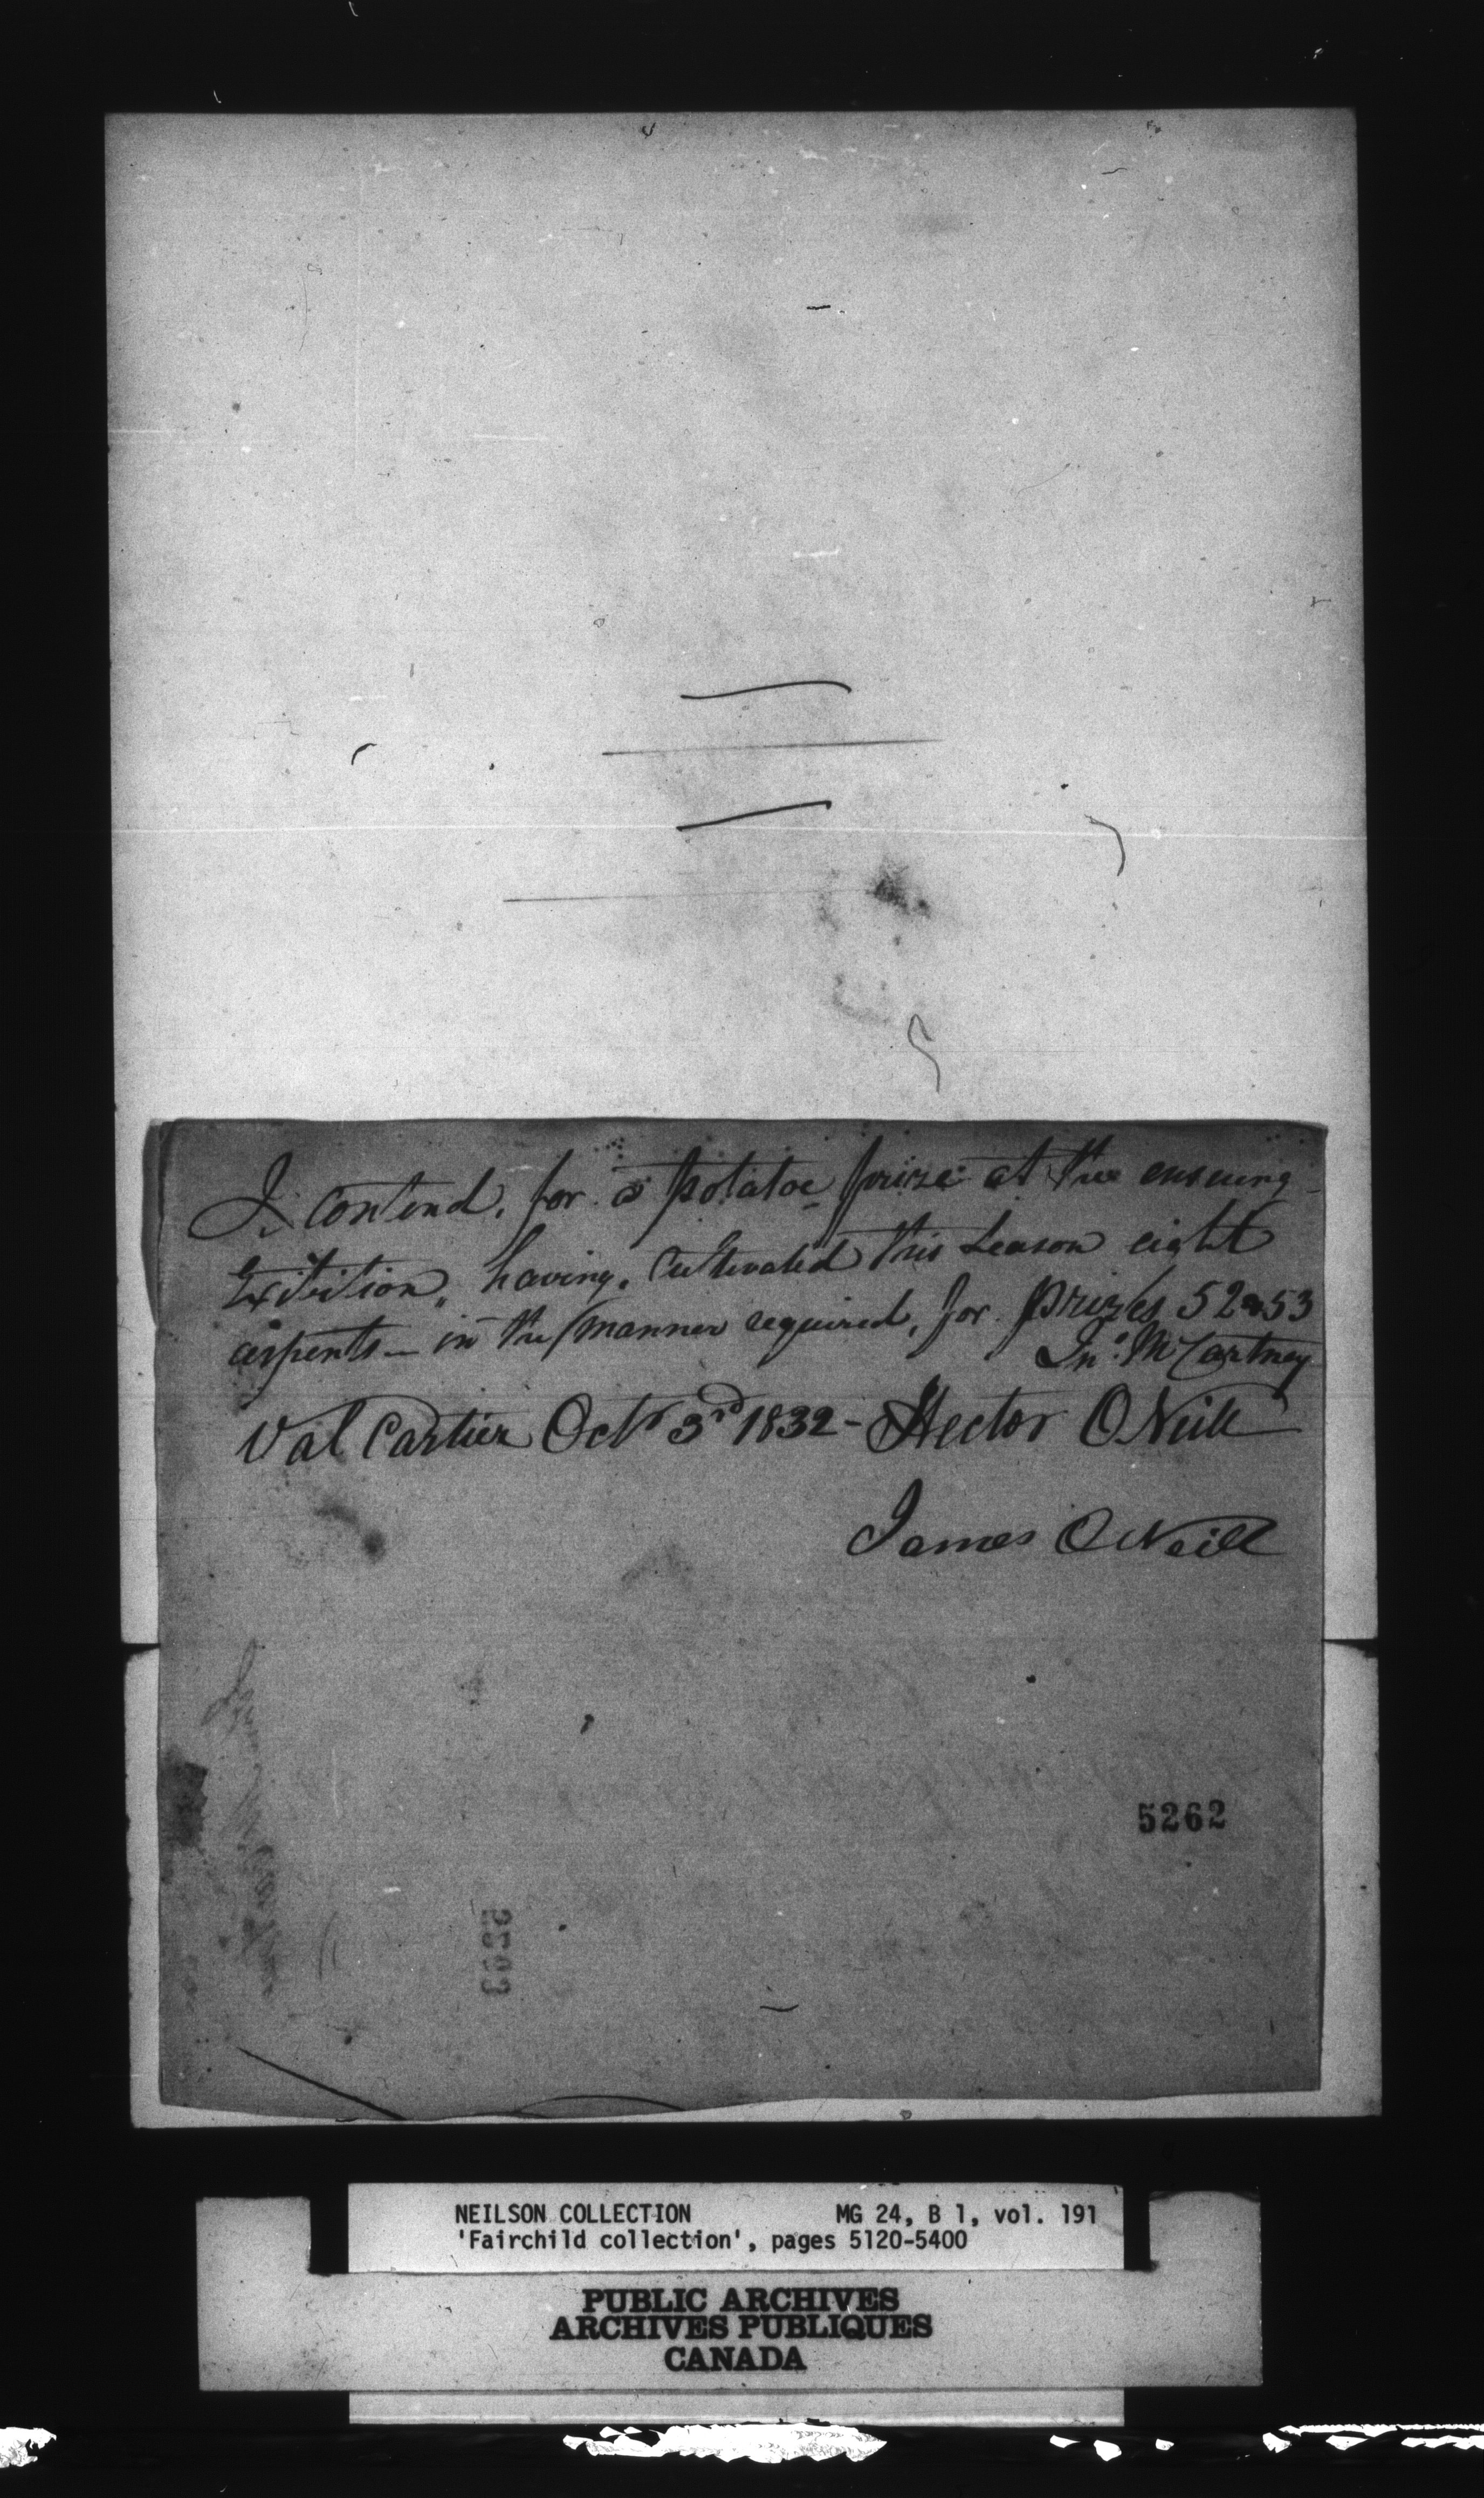 I contend, for a potatoe prize at the ensuing
Exibition, having, Cultivated this Season eight
arpents - in the manner required, for prizes 52 & 53
Jno. McCartney
Val Cartier Octr 3rd 1832 - Hector ONeill
James ONeill
5262
NEILSON COLLECTION MG 24, B 1, vol. 191
'Fairchild collection', pages 5120-5400
PUBLIC ARCHIVES
ARCHIVES PUBLIQUES
CANADA